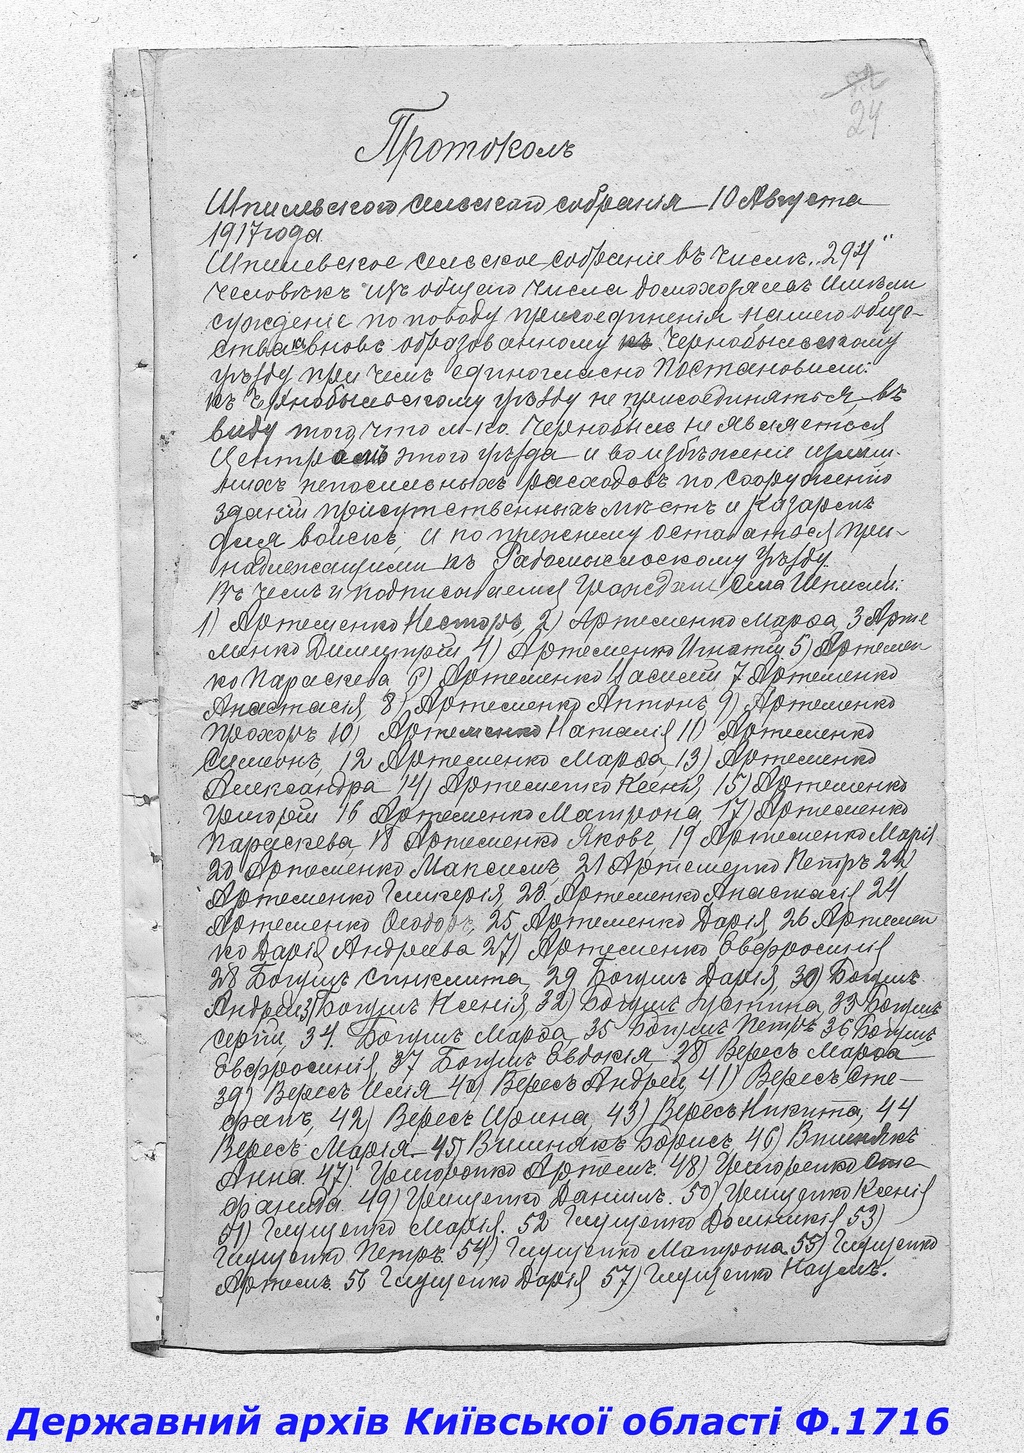 24
Протоколъ
Шпилевского сельского собранія 10 Августа
1917 года.
Шпилевское сельское собраніе въ числѣ „294"
человѣкъ изъ общаго числа домохозяевъ имѣли
сужденіе по поводу присоединенія нашего обще-
ства къ вновь образованному Чернобыльскому
уѣзду при чемъ единогласно Постановили:
къ Чернобыльскому уѣзду не присоединяться въ
виду того, что м-ко. Чернобыль не является
Центромъ этого уѣзда и во избѣжаніе излиш-
нихъ непосильныхъ расходовъ по сооруженію
зданій присутственныхъ мѣстъ и Казармъ
для войскъ, и по прежнему остаться при-
надлежащими къ Радомысльскому уѣзду.
Въ чемъ и подписываемся Граждане села Шпилей:
1) Артеменко Несторъ, 2) Артеменко Марфа, 3 Арте
менко Димитрій 4) Артеменко Игнатій 5) Артемен
ко Параскева 6) Артеменко Василій 7 Артеменко
Анастасія, 8) Артеменко Антонъ, 9) Артеменко
Прохоръ 10) Артеменко Наталія 11) Артеменко
Симеонъ, 12 Артеменко Марфа, 13) Артеменко
Александра 14) Артеменко Ксенія, 15) Артеменко
Григорій 16 Артеменко Матрона, 17) Артеменко
Параскева, 18 Артеменко Яковъ, 19 Артеменко Марія
20 Артеменко Максимъ, 21 Артеменко Петръ 22
Артеменко Гликерія, 23. Артеменко Анастасія 24
Артеменко Ѳеодоръ, 25 Артеменко Дарія, 26 Артемен
ко Дарія Андреева 27) Артеменко Евфросинія
28 Богушъ Синклита, 29 Богушъ Дарія, 30) Богушъ
Андрей 31) Богушъ Ксенія, 32) Богушъ Іустина, 33 Богушъ
Сергій, 34. Богушъ Марфа, 35 Богушъ Петръ 36 Богушъ
Евфросинія, 37 Богушъ Евдокія 38) Вересъ Марфа
39) Вересъ Илія 40) Вересъ Андрей, 41) Вересъ Сте-
фанъ, 42) Вересъ Ирина, 43) Вересъ Никита, 44
Вересъ Марія. 45) Вишнякъ Борисъ, 46) Вишнякъ
Анна. 47) Григоренко Артемъ. 48) Григоренко Сте-
фанида. 49) Грищенко Даніилъ. 50) Грищенко Ксенія
51) Глущенко Марія. 52 Глущенко Домникія 53)
Глущенко Петръ. 54) Глущенко Матрона 55) Глущенко
Артемъ. 56 Глущенко Дарія 57) Глущенко Наумъ.
Державний архів Київської області Ф.1716